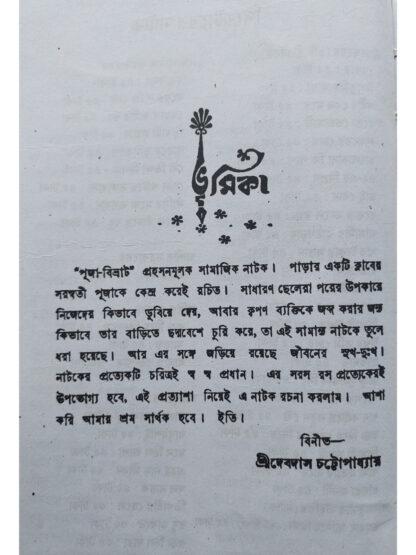 ভূমিকা
"পূজা-বিভ্রাট" প্রহসনমূলক সামাজিক নাটক। পাড়ার একটি ক্লাবের
সরস্বতী পূজাকে কেন্দ্র করেই রচিত। সাধারণ ছেলেরা পরের উপকারে
নিজেদের কিভাবে ডুবিয়ে দেয়, আবার কৃপণ ব্যক্তিকে জব্দ করার জন্য
কিভাবে তার বাড়িতে ছদ্মবেশে চুরি করে, তা এই সামান্য নাটকে তুলে
ধরা হয়েছে। আর এর সঙ্গে জড়িয়ে রয়েছে জীবনের সুখ-দুঃখ।
নাটকের প্রত্যেকটি চরিত্রই স্ব স্ব প্রধান। এর সরস রস প্রত্যেকেরই
উপভোগ্য হবে, এই প্রত্যাশা নিয়েই এ নাটক রচনা করলাম। আশা
করি আমার শ্রম সার্থক হবে। ইতি।
বিনীত—
শ্রীদেবদাস চট্টোপাধ্যায়